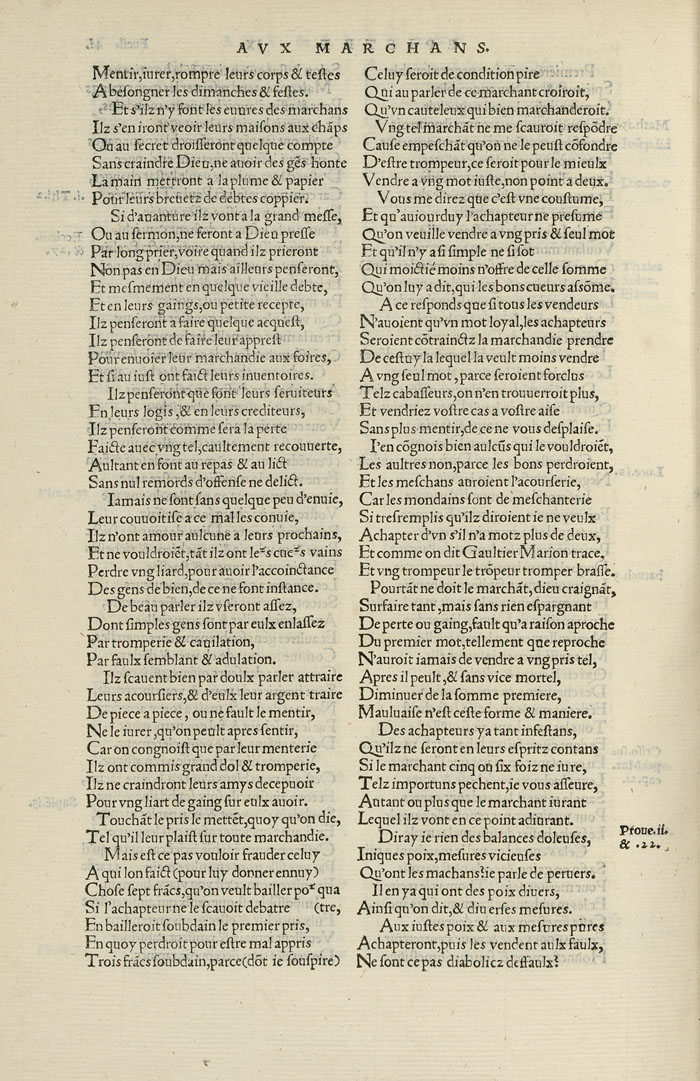 AVX MARCHANS.
Mentir,iurer,rompre leurs corps & testes
A besongner les dimanches & festes.
Et s'ilz n'y font les euures des marchans
Ilz s'en iront veoir leurs maisons aux chãps
Ou au secret droisseront quelque compte
Sans craindre Dieu,ne auoir des gẽs honte
La main mettront a la plume & papier
Pour leurs breuetz de debtes coppier.
Si d'auanture ilz vont a la grand messe,
Ou au sermon,ne feront a Dieu presse
Par long prier,voire quand ilz prieront
Non pas en Dieu mais ailleurs penseront,
Et mesmement en quelque vieille debte,
Et en leurs gaings,ou petite recepte,
Ilz penseront a faire quelque acquest,
Ilz penseront de faire leur apprest
Pour enuoier leur marchandie aux foires,
Et si au iust ont faict leurs inuentoires.
Ilz penseront que font leurs seruiteurs
En leurs logis,& en leurs crediteurs,
Ilz penseront comme sera la perte
Faicte auec vng tel,caultement recouuerte,
Aultant en font au repas & au lict
Sans nul remords d'offense ne delict.
Iamais ne sont sans quelque peu d'enuie,
Leur couuoitise a ce mal les conuie,
Ilz n'ont amour aulcune a leurs prochains,
Et ne vouldroiẽt,tãt ilz ont leᵘʳs cueᵘʳs vains
Perdre vng liard,pour auoir l'accoinctance
Des gens de bien,de ce ne font instance.
De beau parler ilz vseront assez,
Dont simples gens sont par eulx enlassez
Par tromperie & cauilation,
Par faulx semblant & adulation.
Ilz scauent bien par doulx parler attraire
Leurs acoursiers,& d'eulx leur argent traire
De piece a piece, ou ne fault le mentir,
Ne le iurer,qu'on peult apres sentir,
Car on congnoist que par leur menterie
Ilz ont commis grand dol & tromperie,
Ilz ne craindront leurs amys decepuoir
Pour vng liart de gaing sur eulx auoir.
Touchãt le pris le mettẽt,quoy qu'on die,
Tel qu'il leur plaist sur toute marchandie.
Mais est ce pas vouloir frauder celuy
A qui lon faict (pour luy donner ennuy)
Chose sept frãcs,qu'on veult bailler poᵘʳ qua
Si l'achapteur ne le scauoit debatre (tre,
En bailleroit soubdain le premier pris,
En quoy perdroit pour estre mal appris
Trois frãcs soubdain,parce(dõt ie souspire)
Celuy seroit de condition pire
Qui au parler de ce marchant croiroit,
Qu'vn cauteleux qui bien marchanderoit.
Vng tel marchãt ne me scauroit respõdre
Cause empeschãt qu'on ne le peust cõfondre
D'estre trompeur,ce seroit pour le mieulx
Vendre a vng mot iuste,non point a deux.
Vous me direz que c'est vne coustume,
Et qu'auiourduy l'achapteur ne presume
Qu'on veuille vendre a vng pris & seul mot
Et qu'il n'y a si simple ne si sot
Qui moictié moins n'offre de celle somme
Qu'on luy a dit,qui les bons cueurs assõme.
A ce responds que si tous les vendeurs
N'auoient qu'vn mot loyal,les achapteurs
Seroient cõtrainctz la marchandie prendre
De cestuy la lequel la veult moins vendre
A vng seul mot, parce seroient forclus
Telz cabasseurs,on n'en trouuerroit plus,
Et vendriez vostre cas a vostre aise
Sans plus mentir,de ce ne vous desplaise.
I'en cõgnois bien aulcũs qui le vouldroiẽt,
Les aultres non,parce les bons perdroient,
Et les meschans auroient l'acourserie,
Car les mondains sont de meschanterie
Si tresremplis qu'ilz diroient ie ne veulx
Achapter d'vn s'il n'a motz plus de deux,
Et comme on dit Gaultier Marion trace,
Et vng trompeur le trõpeur tromper brasse.
Pourtãt ne doit le marchãt,dieu craignãt,
Surfaire tant,mais sans rien espargnant
De perte ou gaing,fault qu'a raison aproche
Du premier mot,tellement que reproche
N'auroit iamais de vendre a vng pris tel,
Apres il peult,& sans vice mortel,
Diminuer de la somme premiere,
Mauluaise n'est ceste forme & maniere.
Des achapteurs ya tant infestans,
Qu'ilz ne seront en leurs espritz contans
Si le marchant cinq ou six foiz ne iure,
Telz importuns pechent,ie vous asseure,
Autant ou plus que le marchant iurant
Lequel ilz vont en ce point adiurant.
Diray ie rien des balances doleuses,
Iniques poix,mesures vicieuses
Qu'ont les machans?ie parle de peruers.
Il en ya qui ont des poix diuers,
Ainsi qu'on dit,& diuerses mesures.
Aux iustes poix & aux mesures pures
Achapteront,puis les vendent aulx faulx,
Ne sont ce pas diabolicz deffaulx?
Proue.ii.
& .22.